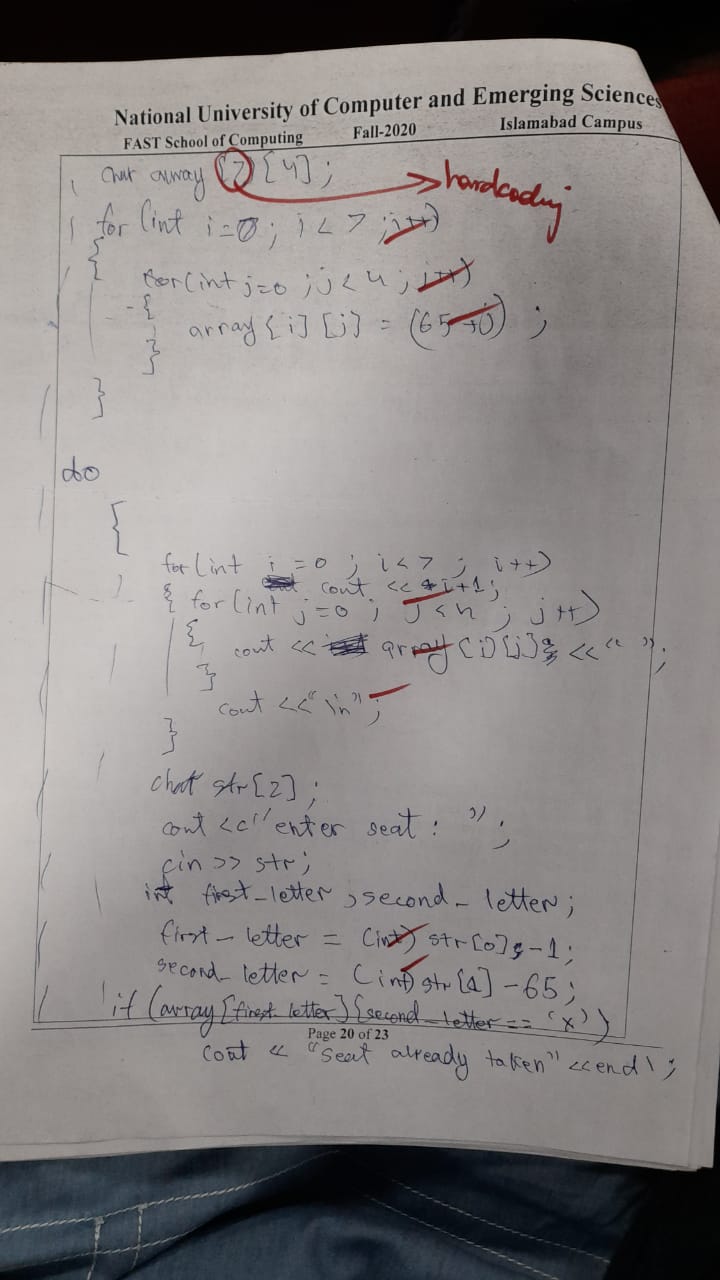 National University of Computer and Emerging Sciences
FAST School of Computing Fall-2020 Islamabad Campus
char array [7] [4]; hardcoding
for (int i=0; i<7 ; i++)
{
for (int j=0 ; j<4 ; j++)
{
array [i] [j] = (65+j) ;
}
}
do
{
for (int i=0 ; i<7 ; i++)
cout << i+1;
{ for (int j=0 ; j<4 ; j++)
{
cout << array [i] [j] << " ";
}
cout << "\n";
}
char str[2];
cout << "enter seat: ";
cin >> str;
int first_letter , second_letter;
first_letter = (int) str[0] -1;
second_letter = (int) str[1] -65;
if (array [first_letter] [second_letter == 'x'))
Page 20 of 23
cout << "Seat already taken" << endl;